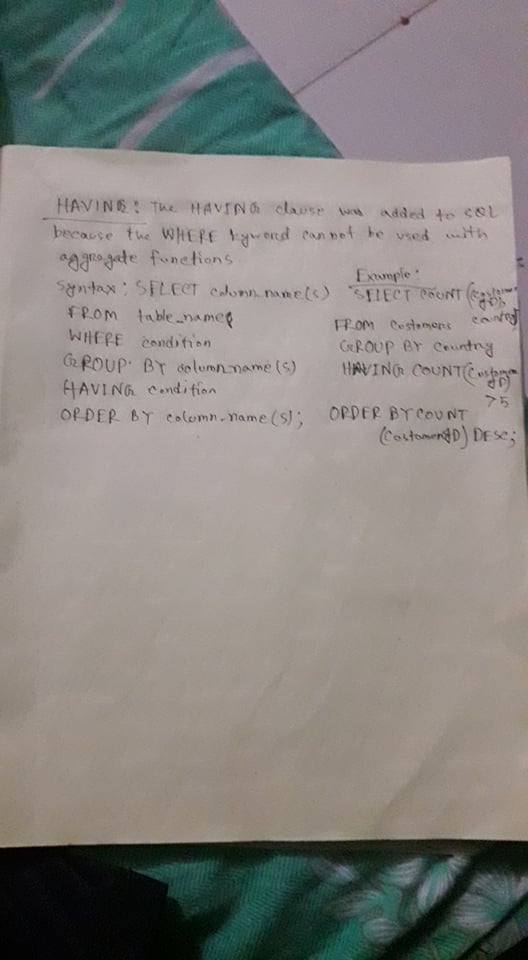 HAVING: The HAVING clause was added to SQL
because the WHERE kyword cannot be used with
aggregate functions.
Syntax: SELECT column_name(s)
FROM table_name
WHERE condition
GROUP BY column_name(s)
HAVING condition
ORDER BY column_name(s);
Example:
SELECT COUNT (Customer
ID),
country
FROM Customers
GROUP BY Country
HAVING COUNT(Customer
ID)
>5
ORDER BY COUNT
(CustomerID) DESC;